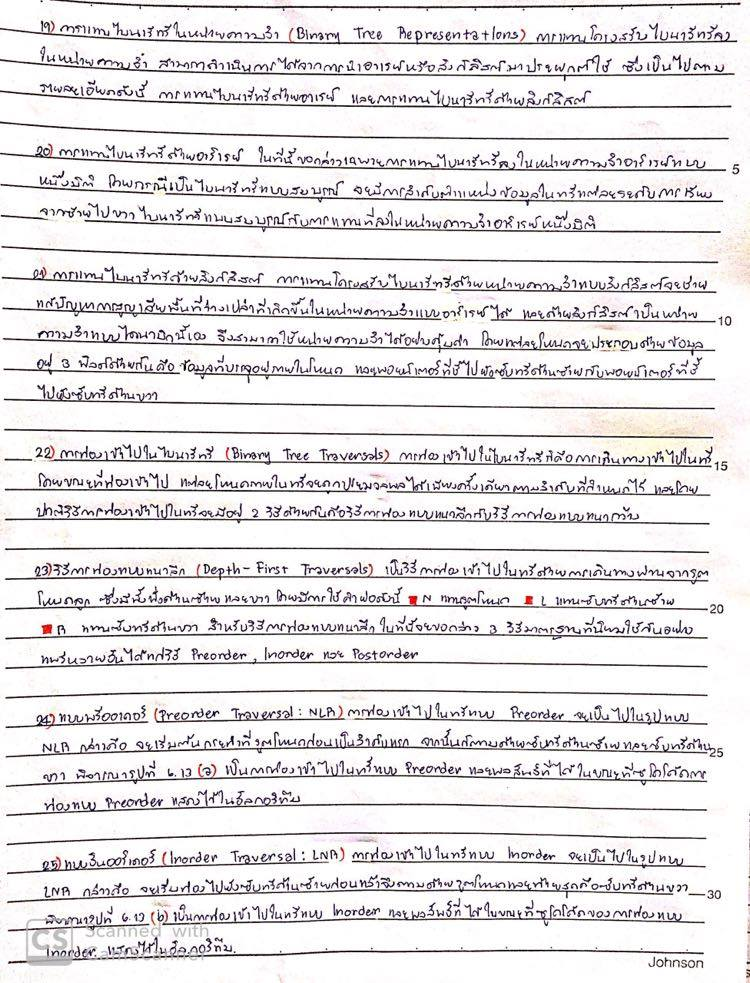 19) การแทนไบนารีทรีในหน่วยความจำ (Binary Tree Representations) การแทนโครงสร้างไบนารีทรีลง
ในหน่วยความจำ สามารถดำเนินการได้จากการนำอาร์เรย์หรือลิงก์ลิสต์มาประยุกต์ใช้ ซึ่งเป็นไปตาม
รายละเอียดดังนี้ การแทนไบนารีทรีด้วยอาร์เรย์ และการแทนไบนารีทรีด้วยลิงก์ลิสต์
20) การแทนไบนารีทรีด้วยอาร์เรย์ ในที่นี้ขอกล่าวเฉพาะการแทนไบนารีทรีลงในหน่วยความจำอาร์เรย์แบบ
5
หนึ่งมิติ โดยกรณีเป็นไบนารีทรีแบบสมบูรณ์ จะมีการลำดับตำแหน่งข้อมูลในทรีแต่ละระดับการเรียง
จากซ้ายไปขวา ไบนารีทรีแบบสมบูรณ์กับการแทนที่ลงในหน่วยความจำอาร์เรย์หนึ่งมิติ
21) การแทนไบนารีทรีด้วยลิงก์ลิสต์ การแทนโครงสร้างไบนารีทรีด้วยหน่วยความจำแบบลิงก์ลิสต์จะช่วย
แก้ปัญหาการสูญเสียพื้นที่ว่างเปล่าที่เกิดขึ้นในหน่วยความจำแบบอาร์เรย์ได้ และด้วยลิงก์ลิสต์เป็นหน่วย
10
ความจำแบบไดนามิกนี้เอง จึงสามารถใช้หน่วยความจำได้อย่างคุ้มค่า โดยแต่ละโหนดจะประกอบด้วยข้อมูล
อยู่ 3 ฟิลด์ด้วยกันคือ ข้อมูลที่บรรจุอยู่ภายในโหนด และพอยน์เตอร์ที่ชี้ไปยังซับทรีด้านซ้ายกับพอยน์เตอร์ที่ชี้
ไปยังซับทรีด้านขวา
22) การท่องเข้าไปในไบนารีทรี (Binary Tree Traversals) การท่องเข้าไปในไบนารีทรีก็คือการเดินทางเข้าไปในทรี
15
โดยขณะที่ท่องเข้าไป แต่ละโหนดภายในทรีจะถูกประมวลผลได้เพียงครั้งเดียวตามลำดับที่กำหนดไว้ และโดย
ปกติวิธีการท่องเข้าไปในทรีจะมีอยู่ 2 วิธีด้วยกันคือวิธีการท่องแบบแนวลึกกับวิธีการท่องแบบแนวกว้าง
23) วิธีการท่องแบบแนวลึก (Depth-First Traversals) เป็นวิธีการท่องเข้าไปในทรีด้วยการเดินทางผ่านจากรูต
โหนดลูก ซึ่งมีทั้งฝั่งด้านซ้ายและขวา โดยมีการใช้คำย่อดังนี้ ■ N แทนรูตโหนด ■ L แทนซับทรีด้านซ้าย
20
■ R แทนซับทรีด้านขวา สำหรับวิธีการท่องแบบแนวลึก ในที่นี้จะขอกล่าว 3 วิธีมาตรฐานที่นิยมใช้กันอย่าง
แพร่หลายอันได้แก่วิธี Preorder, Inorder และ Postorder
24) แบบพรีออเดอร์ (Preorder Traversal : NLR) การท่องเข้าไปในทรีแบบ Preorder จะเป็นไปในรูปแบบ
NLR กล่าวคือ จะเริ่มต้นกระทำที่รูตโหนดก่อนเป็นลำดับแรก จากนั้นก็ตามด้วยซับทรีด้านซ้ายและซับทรีด้าน
25
ขวา พิจารณารูปที่ 6.13 (a) เป็นการท่องเข้าไปในทรีแบบ Preorder และผลลัพธ์ที่ได้ ในขณะที่ซูโดโค้ดการ
ท่องแบบ Preorder แสดงไว้ในอัลกอริทึม
25) แบบอินออร์เดอร์ (Inorder Traversal : LNR) การท่องเข้าไปในทรีแบบ Inorder จะเป็นไปในรูปแบบ
LNR กล่าวคือ จะเริ่มท่องไปยังซับทรีด้านซ้ายก่อนแล้วจึงตามด้วยรูตโหนดและท้ายสุดคือซับทรีด้านขวา
30
พิจารณารูปที่ 6.13 (b) เป็นการท่องเข้าไปในทรีแบบ Inorder และผลลัพธ์ที่ได้ ในขณะที่ซูโดโค้ดของการท่องแบบ
Inorder แสดงไว้ในอัลกอริทึม.
CS Scanned with
CamScanner
Johnson